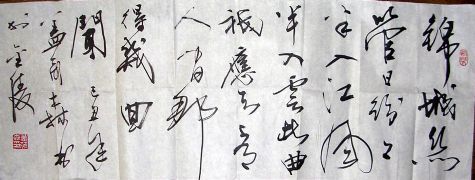 錦城絲
管日紛々
半入江風
半入雲此曲
祇應天上有
人间能
得幾回
聞 己丑
森书
於金陵